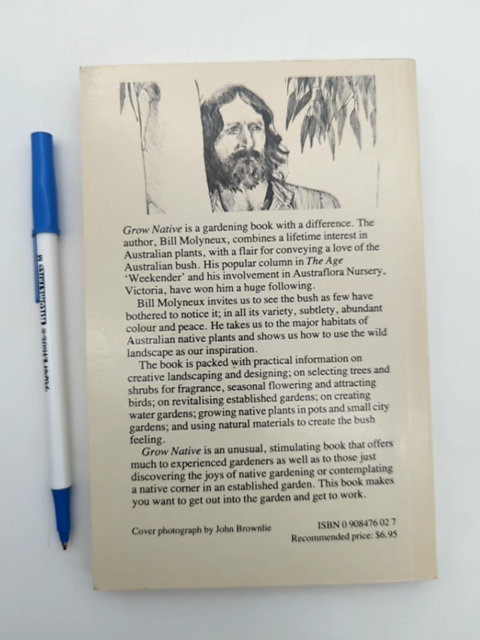 Grow Native is a gardening book with a difference. The
author, Bill Molyneux, combines a lifetime interest in
Australian plants, with a flair for conveying a love of the
Australian bush. His popular column in The Age
‘Weekender’ and his involvement in Austraflora Nursery,
Victoria, have won him a huge following.
Bill Molyneux invites us to see the bush as few have
bothered to notice it; in all its variety, subtlety, abundant
colour and peace. He takes us to the major habitats of
Australian native plants and shows us how to use the wild
landscape as our inspiration.
The book is packed with practical information on
creative landscaping and designing; on selecting trees and
shrubs for fragrance, seasonal flowering and attracting
birds; on revitalising established gardens; on creating
water gardens; growing native plants in pots and small city
gardens; and using natural materials to create the bush
feeling.
Grow Native is an unusual, stimulating book that offers
much to experienced gardeners as well as to those just
discovering the joys of native gardening or contemplating
a native corner in an established garden. This book makes
you want to get out into the garden and get to work.
Cover photograph by John Brownlie
ISBN 0 908476 02 7
Recommended price: $6.95